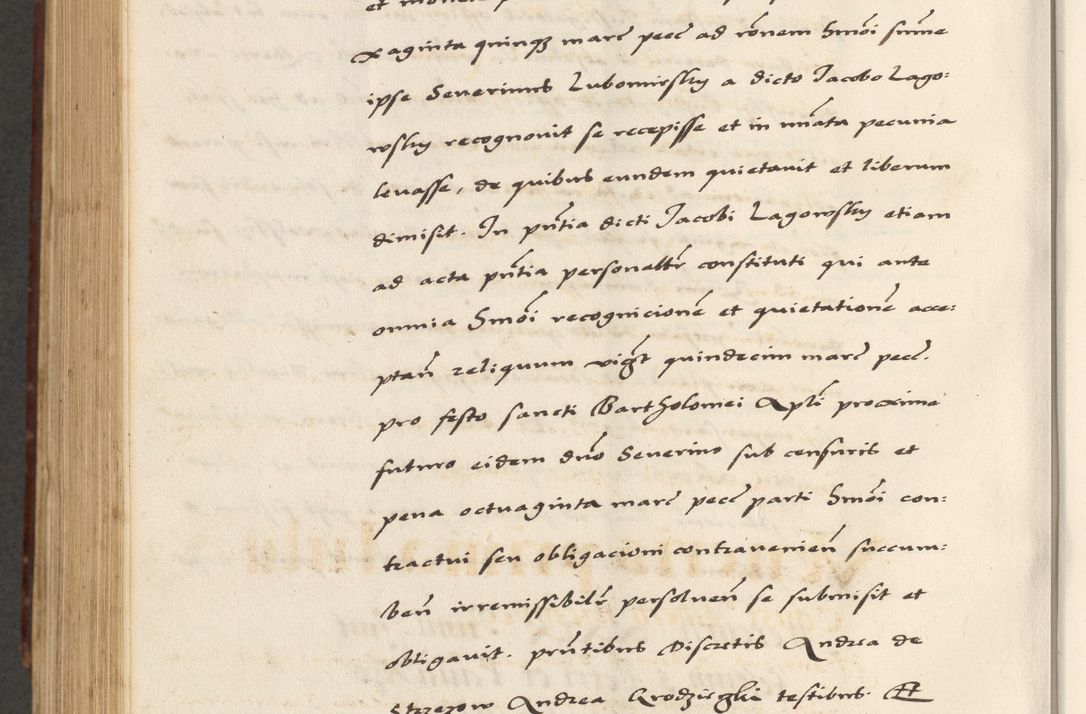 xaginta quinq3 marc pecc ad rõnem Smõi sum̃e
ipse Severinus Lubomirsky a dicto Jacobo Lago:
wsky recognovit se recepisse et in nũ̃ata pecunia
levasse, de quibus eundem quietavit et liberum
dimisit. In pñtia dicti Jacobi Lagowsky etiam
ad acta pñtia personaltr̃ constituti qui ante
omnia Smõi recognicionẽ et quietationẽ acce:
ptañ reliquum vigr̃t quindecim marc pecc.
pro festo sancti Bartholomei Apli proxime
futuro eidem dño Severino sub censuris et
pena octuaginta marc pecc parti Smõi con:
tractui seu obligacioni contravenieñ succum:
beñ irremissibilr̃ persolueñ se submisit et
obligavit. pñtibus Discretis Andrea de
Strzezow Andrea Grodzieczki testibus. Et